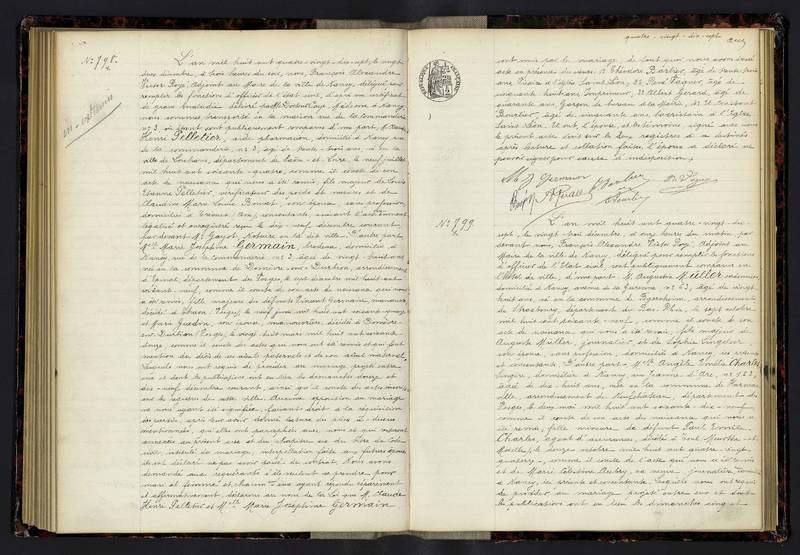 N° 798.
en-extremis
L'an mil huit cent quatre-vingt-dix-sept, le vingt
deux décembre, à trois heures du soir, nous, François Alexandre
Victor Adjoint au Maire de la ville de Nancy, délégué pour
remplir les fonctions d'officier de l'état civil, d'après un certificat
de grave maladie délivré par M. Médecin à Nancy
nous sommes transporté en la maison rue de la Commanderie
n° 3, où étant ont publiquement comparu d'une part, M. Claude
Henri Pelletier, aide pharmacien, domicilié à Nancy rue
de la commanderie, n° 3, âgé de trente-trois ans, né en la
ville de Louhans, département de Saône-et-Loire, le neuf juillet
mil huit cent soixante-quatre, comme il conste de son
acte de naissance qui nous a été remis, fils majeur de Louis
Etienne Pelletier, vérificateur des poids et mesures et de
Claudine Marie Louise son épouse, sans profession,
domiciliés à Trévoux (Ain), consentants, suivant acte
légalisé et enregistré reçu le dix-neuf décembre courant
pardevant M. Notaire en la dite ville. D'autre part,
M.lle Marie Joséphine Germain, brodeuse, domiciliée à
Nancy rue de la Commanderie n° 3, âgée de vingt-huit ans
née en la commune de Domèvre-sur-Durbion, arrondissement
d'Epinal, département des Vosges, le sept décembre mil huit cent
soixante-neuf, comme il conste de son acte de naissance qui nous
a été remis, fille majeure de défunts Vincent Germain, manœuvre
décédé à Thaon (Vosges), le neuf juin mil huit cent soixante-
et son épouse, manouvrière, décédée à Domèvre-
sur-Durbion (Vosges), le vingt huit mars mil huit cent soixante
douze, comme il conste des actes qui nous ont été remis et qui font
mention du décès de ses aïeuls paternels et de son aïeul maternel,
Lesquels nous ont requis de procéder au mariage projeté entre
eux et dont les publications ont eu lieu les dimanches douze et
dix-neuf décembre courant, ainsi qu'il conste des actes inscrits
sur les registres de cette ville. Aucune opposition au mariage
ne nous ayant été signifiée, faisant droit à la réquisition
des parties, après leur avoir donné lecture des pièces ci-dessus
mentionnées, qu'elles ont paraphées avec nous et qui resteront
annexées au présent acte et du chapitre six du titre du Code
civil, intitulé du mariage, interpellation faite aux futurs époux
ils ont déclaré ne pas avoir passé de contrat. Nous avons
demandé aux requérants s'ils veulent se prendre pour
mari et femme et chacun d'eux ayant répondu séparément
et affirmativement, déclarons au nom de la Loi que M. Claude
Henri Pelletier et M.elle Marie Joséphine Germain
quatre-vingt-dix-sept
sont unis par le mariage, de tout quoi nous avons dressé
acte en présence des sieurs 1° Théodore Barbier, âgé de trente-trois
ans Vicaire à l'église Saint Léon, 2° René Vagner, âgé de
cinquante huit ans, Imprimeur, 3° Albert Gérard, âgé de
quarante ans, Garçon de bureau à la Mairie, 4° Et
âgé de cinquante ans, Sacristain à l'Eglise
Saint Léon. Et ont l'épouse et les témoins signé avec nous
le présent acte écrit sur les deux registres à ce destinés
après lecture et collation faites, l'époux a déclaré ne
pouvoir signer pour cause d'indisposition.
M J Germain
A Gérard
T. Barbier
R. Vagner
N° 799
L'an mil huit cent quatre-vingt-dix-
sept, le vingt-trois décembre, à onze heures du matin, par
devant nous, François Alexandre Victor Adjoint au
Maire de la ville de Nancy, délégué pour remplir les fonctions
d'officier de l'état civil, sont publiquement comparus en
l'hôtel de ville, d'une part M. Augustin Müller,
domicilié à Nancy, avenue de la Garenne n° 63, âgé de vingt
huit ans, né en la commune de arrondissement
de Strasbourg, département du Bas-Rhin, le sept octobre
mil huit cent soixante-neuf, comme il conste de son
acte de naissance qui nous a été remis, fils majeur de
Auguste Müller, journalier, et de Sophie
son épouse, sans profession, domiciliés à Nancy, ici présents
et consentants. D'autre part, M.elle Angèle Emélie Charles
lingère, domiciliée à Nancy, rue Jeanne d'Arc,
âgée de dix-huit ans, née en la commune de
ville, arrondissement de Neufchâteau, département des
Vosges le deux mai mil huit cent soixante-dix-neuf,
comme il conste de l'acte de naissance qui nous a
été remis, fille mineure de défunt Paul Emile
Charles, agent d'assurances, décédé à Toul (Meurthe-et-
Moselle), le douze octobre mil huit cent quatre-vingt-
comme il conste de l'acte qui nous a été remis
et de Marie Célestine Aubry, sa veuve, journalière, domiciliée
à Nancy, ici présente et consentante, Lesquels nous ont requis
de procéder au mariage projeté entre eux et dont
les publications ont eu lieu les dimanches cinq et